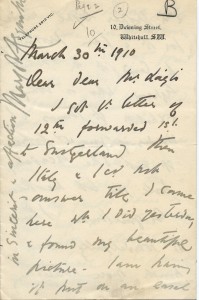 B
(2)
10
10, Downing Street,
Whitehall. S.W.
March 30th 1910
Dear dear Mr
I got yr letter of
12th forwarded 1st
to Switzerland then
Italy & I cd not
answer till I came
here wh I did yesterday
& found my beautiful
picture - I am having
it put on an easel
in sincere & affection